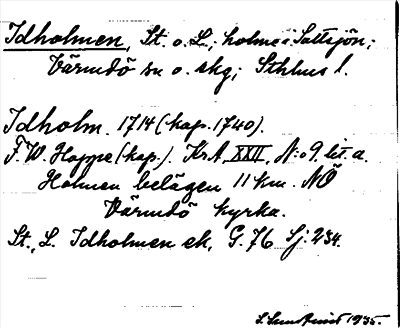 Idholmen, St. o. L.; holme i Saltsjön;
Värmdö sn o. skg; Sthlms l.
Idholm. 1714 (kop. 1740).
F. W. Hoppe (kop.). KrA, XXII, N:o 9. lit. a.
Holmen belägen 11 km. NÖ
Värmdö kyrka.
St., L. Idholmen ek, G. 76 Sj: 234.
1935.